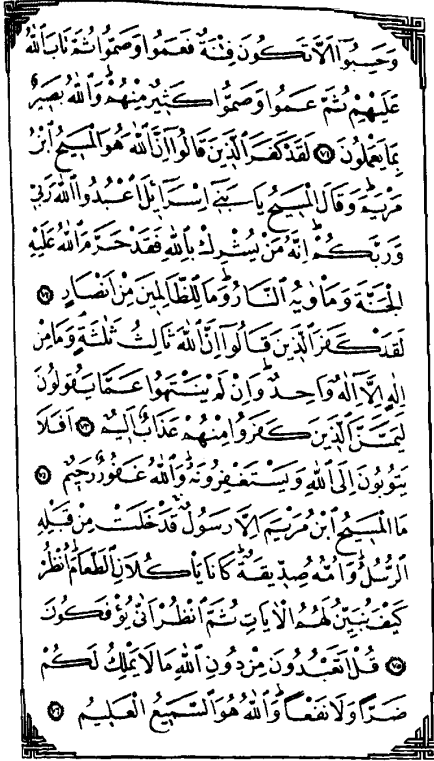 وَحَسِبُٓوا اَلَّا تَكُونَ فِتْنَةٌ فَعَمُوا وَصَمُّوا ثُمَّ تَابَ اللّٰهُ
عَلَيْهِمْ ثُمَّ عَمُوا وَصَمُّوا كَثِيرٌ مِنْهُمْۜ وَاللّٰهُ بَصِيرٌ
بِمَا يَعْمَلُونَ ﴿٧١﴾ لَقَدْ كَفَرَ الَّذِينَ قَالُٓوا اِنَّ اللّٰهَ هُوَ الْمَسِيحُ ابْنُ
مَرْيَمَۜ وَقَالَ الْمَسِيحُ يَا بَنِٓي اِسْرَٓائِلَ اعْبُدُوا اللّٰهَ رَبِّي
وَرَبَّكُمْۜ اِنَّهُ مَنْ يُشْرِكْ بِاللّٰهِ فَقَدْ حَرَّمَ اللّٰهُ عَلَيْهِ
الْجَنَّةَ وَمَأْوٰيهُ النَّارُۜ وَمَا لِلظَّالِمِينَ مِنْ اَنْصَارٍ ﴿٧٢﴾
لَقَدْ كَفَرَ الَّذِينَ قَالُٓوا اِنَّ اللّٰهَ ثَالِثُ ثَلٰثَةٍۢ وَمَا مِنْ
اِلٰهٍ اِلَّٓا اِلٰهٌ وَاحِدٌۜ وَاِنْ لَمْ يَنْتَهُوا عَمَّا يَقُولُونَ
لَيَمَسَّنَّ الَّذِينَ كَفَرُوا مِنْهُمْ عَذَابٌ اَلِيمٌ ﴿٧٣﴾ اَفَلَا
يَتُوبُونَ اِلَى اللّٰهِ وَيَسْتَغْفِرُونَهُۜ وَاللّٰهُ غَفُورٌ رَحِيمٌ ﴿٧٤﴾
مَا الْمَسِيحُ ابْنُ مَرْيَمَ اِلَّا رَسُولٌۚ قَدْ خَلَتْ مِنْ قَبْلِهِ
الرُّسُلُۜ وَاُمُّهُ صِدِّيقَةٌۜ كَانَا يَأْكُلَانِ الطَّعَامَۜ اُنْظُرْ
كَيْفَ نُبَيِّنُ لَهُمُ الْاٰيَاتِ ثُمَّ انْظُرْ اَنّٰى يُؤْفَكُونَ
﴿٧٥﴾ قُلْ اَتَعْبُدُونَ مِنْ دُونِ اللّٰهِ مَا لَا يَمْلِكُ لَكُمْ
ضَرًّا وَلَا نَفْعًاۜ وَاللّٰهُ هُوَ السَّمِيعُ الْعَلِيمُ ﴿٧٦﴾